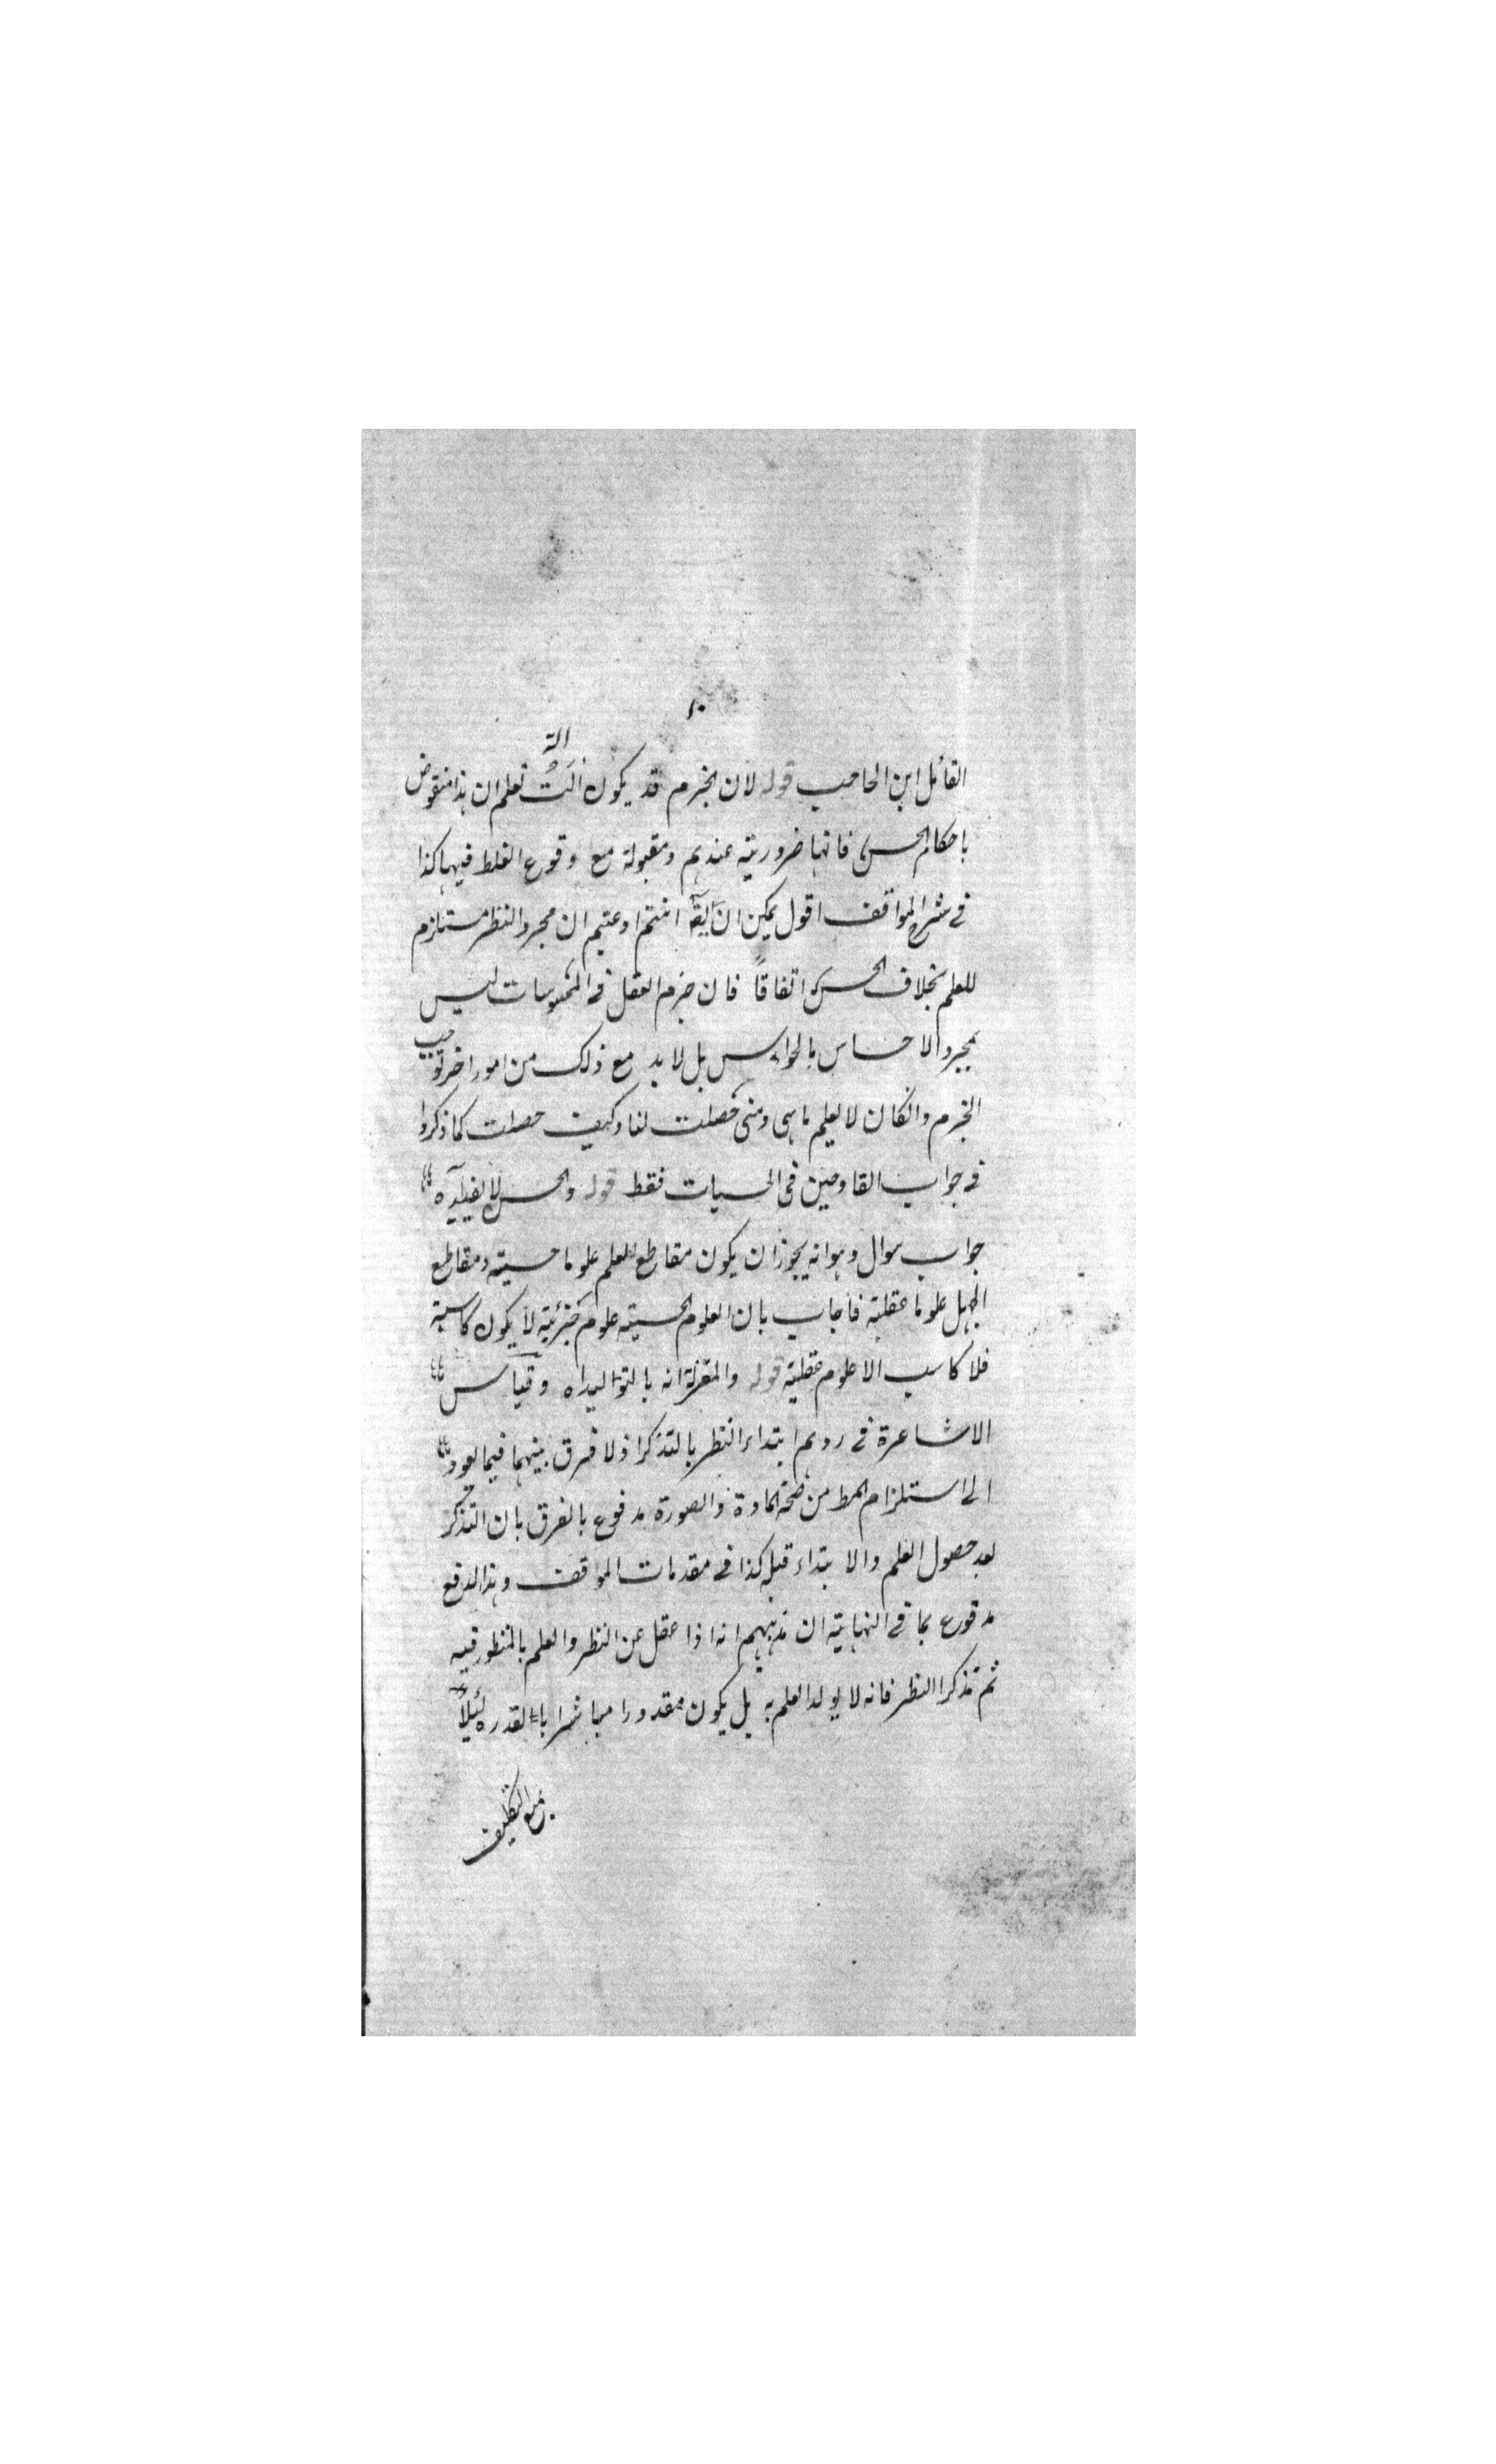 القائل ابن الحاجب قوله لان الجزم قد يكون الت تعلم ان هذا منقوض
باحكام الحس فانها ضرورية عندهم ومقبولة مع وقوع الغلط فيها كذا
في شرح المواقف اقول يمكن ان يق انتم ادعيتم ان مجرد النظر مستلزم
للعلم بخلاف الحس اتفاقاً فان جزم العقل في المحسوسات ليس
بمجرد الاحساس بالحواس بل لا بد مع ذلك من امور اخر توجب
الجزم وانكان لا يعلم ما هي ومتى حصلت لنا وكيف حصلت كما ذكروا
في جواب القادحين في الحسيات فقط قوله والحس لا يفيد آه
جواب سوال وهو انه يجوز ان يكون مقاطع العلم علوما حسية ومقاطع
الجهل علوما عقلية فاجاب بان العلوم الحسية علوم جزئية لا يكون كاسبة
فلا كاسب الا علوم عقلية قوله والمعتزلة انه بالتواليد اه وقياس
الاشاعرة في ردهم ابتداء النظر بالتذكر اذ لا فرق بينهما فيما يعود
الى استلزام المط من صحة المادة والصورة مدفوع بالفرق بان التذكر
بعد حصول العلم والابتداء قبله كذا في مقدمات المواقف وهذا الدفع
مدفوع بما في النهاية ان مذهبهم انه اذا غفل عن النظر والعلم بالمنظور فيه
ثم تذكر النظر فانه لا يولد العلم به بل يكون مقدورا مباشرا بالقدره لئلا
يقع التكليف